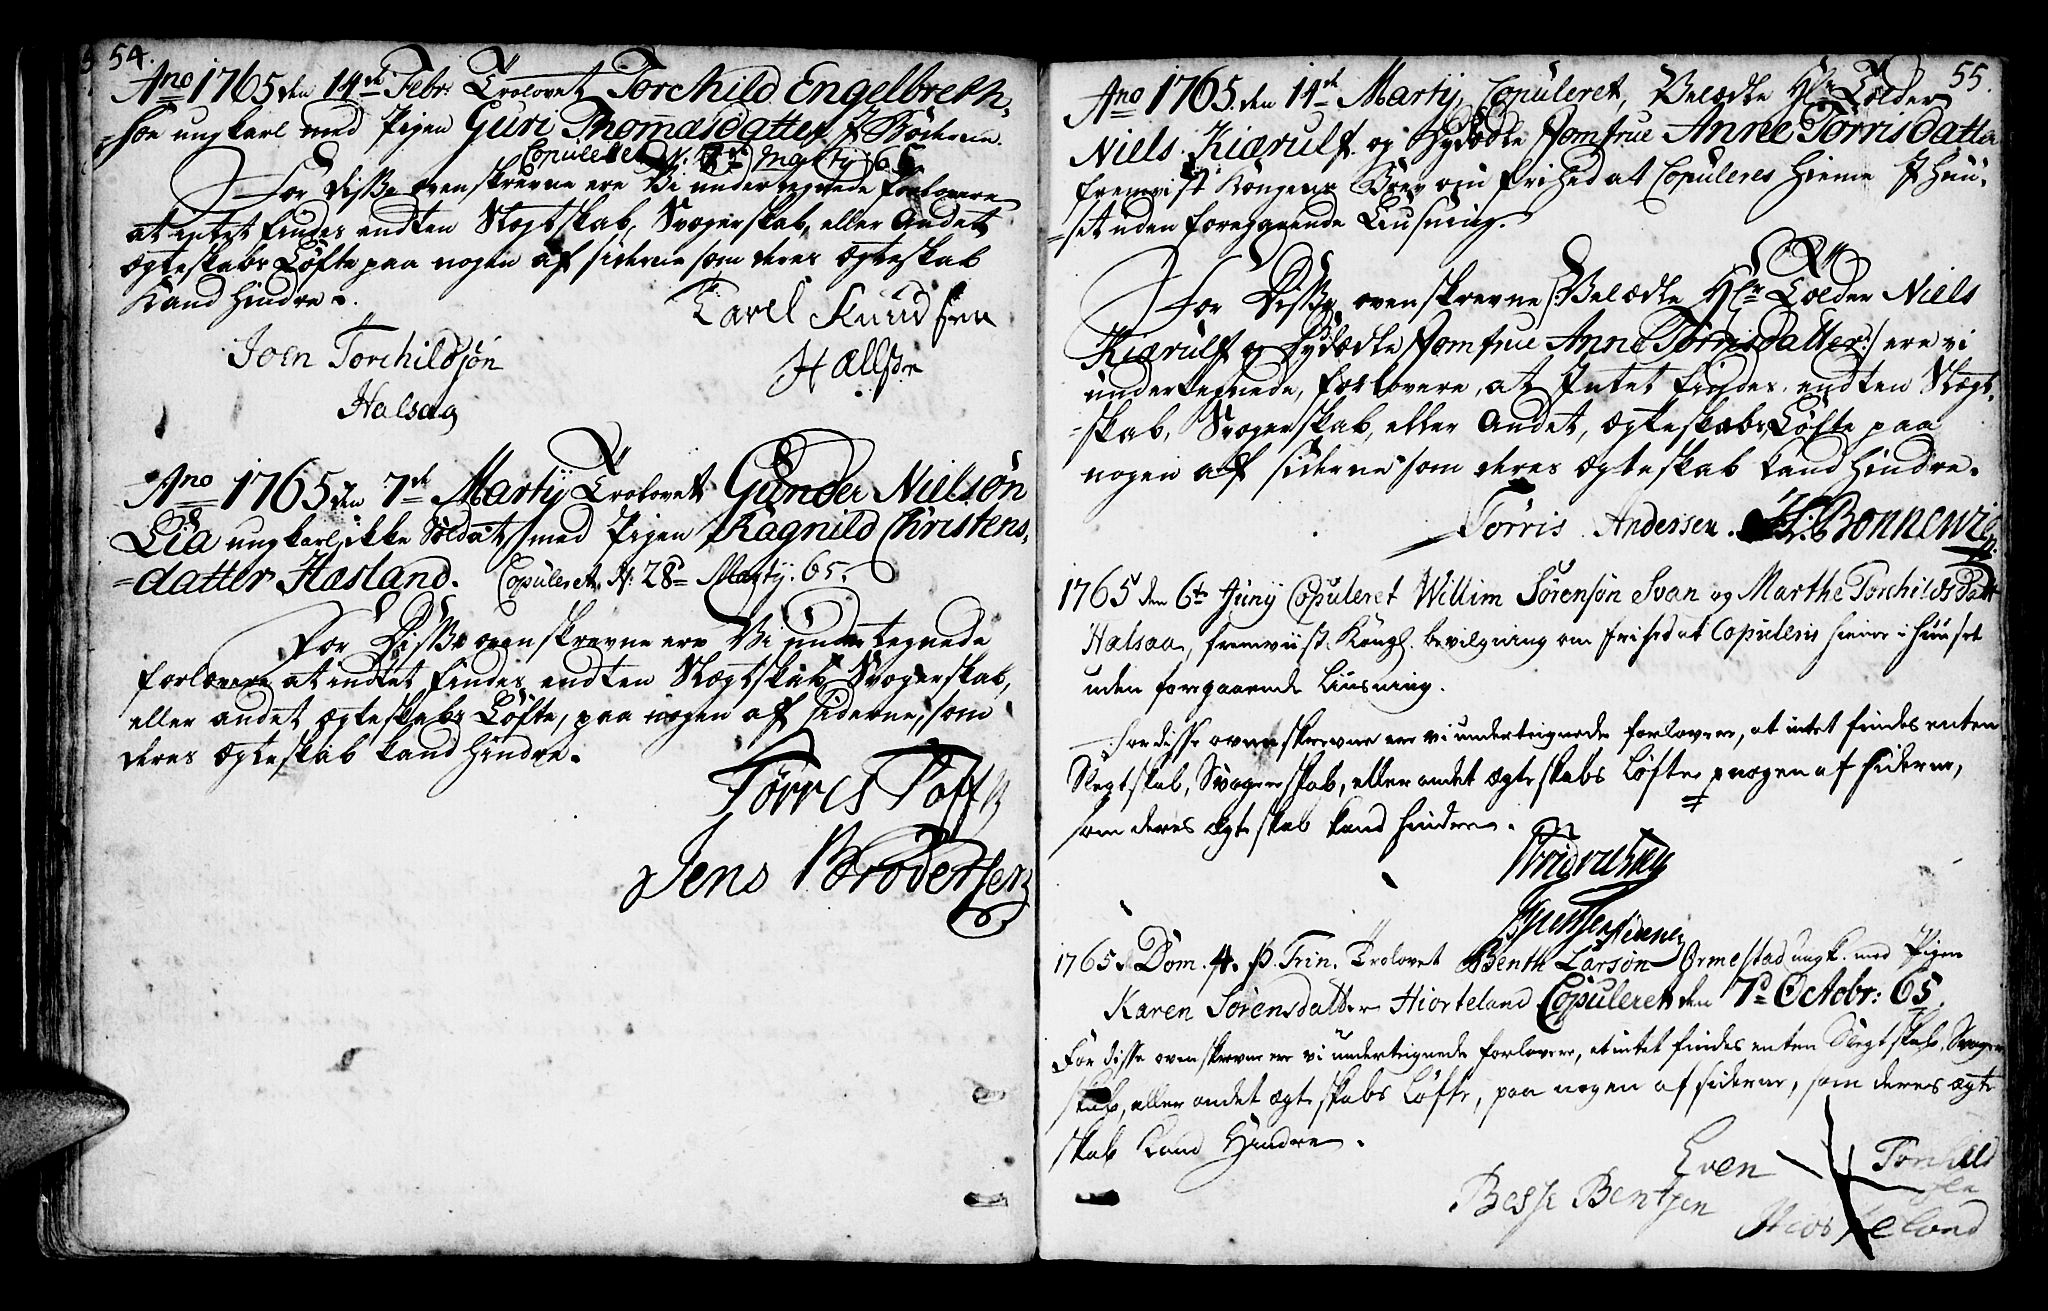 54.
Ano 1765 den 14de Febr: Trolovet Torchild Engelbreth-
søn ungkarl med Pigen Guri Thomasdatter
Copuleret Marty 65
For disse ovenskrevne ere Vi undertegnede forlovere
at intet findes endten Slægtskab, Svogerskab, eller Andet
Ægteskabs Løfte paa nogen af siderne som deres Ægteskab
kand hindre.
Karel Knudsen
Joen Torchildsøn
Halsaa
Ano 1765 den 7de Martij Trolovet Gunder Nielsøn
Lia ungkarl, ikke Soldat, med Pigen Ragnild Christens-
datter Hæsland. Copuleret d: 28de Martij 65.
For Disse ovenskrevne ere Vi undertegnede
forlovere at indtet findes endten Slægtskab Svogerskab,
eller andet Ægteskabs Løfte, paa nogen af siderne, som
deres Ægteskab kand hindre.
Torres
Jens Brodersen
55.
Ano 1765 den 14de Martij, Copuleret, Velædle Hr. Tolder
Niels Kiærulf og Dydædle Jomfrue Anne Torrisdatter
fremvist Kongens Brev om frihed at Copuleres hieme I Huu-
set uden foregaaende Liusning.
For Disse ovenskrevne /:Velædle Hr. Tolder Niels
Kiærulf og Dydædle Jomfrue Anne Torrisdatter:/ ere vi
undertegnede, forlovere, at Intet findes endten Slægt-
skab, Svogerskab, eller Andet, Ægteskabs Løfte paa
nogen af siderne som deres Ægteskab kand hindre.
Törris Andersen. H: Bonnewie
1765 den 6te Juny Copuleret Willim Sörensön Svan og Marthe Torchilds Datt
Halsaa, fremviist Kongl. bevilgning om frihed at Copuleris hieme i Huuset
uden foregaaende Liusning.
For disse ovenskrevne ere vi undertegnede forlovere, at intet findes enten
Slegtskab, Svogerskab, eller andet Ægteskabs Løfte p nogen af siderne,
som deres Ægteskab kand hindre.
1765 d Dom. 4. p. Trin. Trolovet Benth Larsøn Ormestad ungk. med Pigen
Karen Sørensdatter Hiorteland Copuleret den 7de Octobr: 65.
For disse ovenskrevne ere vi undertegnede forlovere, at intet findes enten Slegtskab, Svoger
skab, eller andet Ægteskabs Løfte, paa nogen af siderne, som deres Ægte
skab kand Hindre.
Even Torchild
sen
Besse Bentsen
Hiorteland